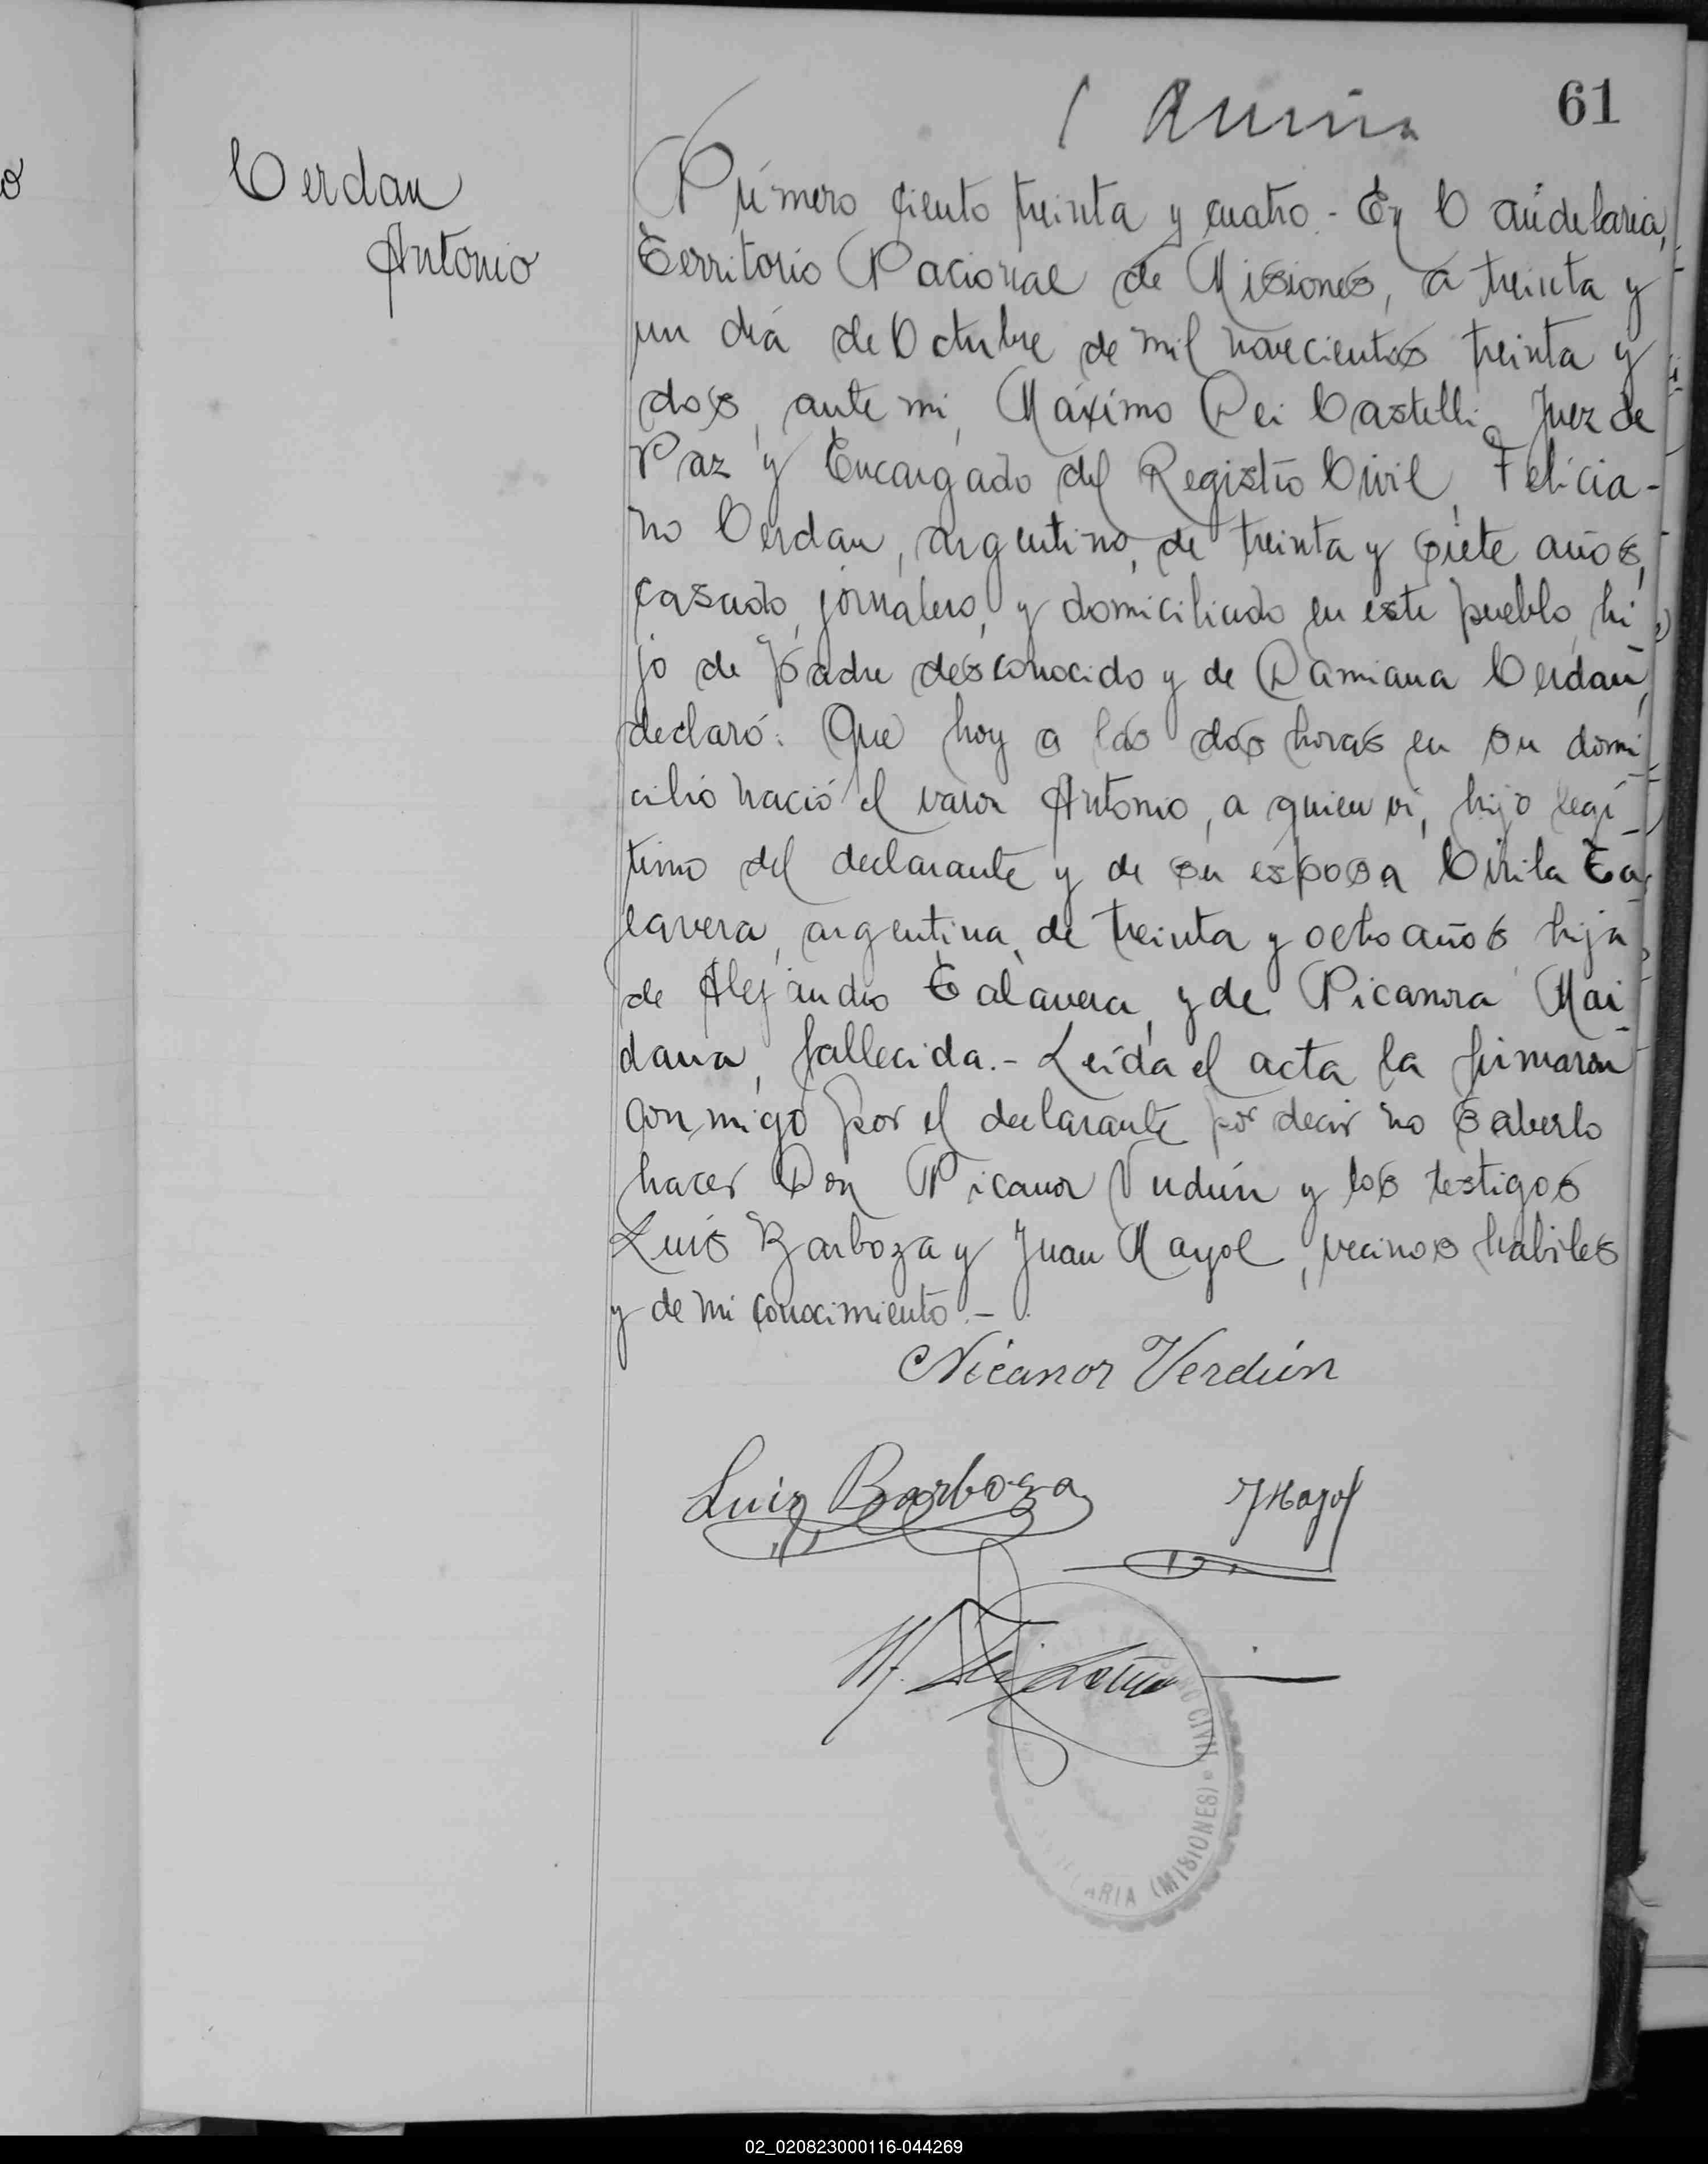 61
Cerdan
Antonio
Número ciento treinta y cuatro.- En Candelaria,
Territorio Nacional de Misiones, a treinta y
un dia de Octubre de mil novecientos treinta y
dos, ante mi, Máximo Dei Castelli, Juez de
Paz y Encargado del Registro Civil, Felicia-
no Cerdan, argentino, de treinta y siete años,
casado, jornalero, y domiciliado en este pueblo, hi
jo de padre desconocido y de Damiana Cerdan,
declaró: Que hoy a las dos horas en su domi
cilio nació el varon Antonio, a quien vi, hijo legi
timo del declarante y de su esposa Cirila Ta
lavera, argentina, de treinta y ocho años, hija
de Alejandro Talavera, y de Nicanora Mai
dana, fallecida.- Leída el acta la firmaron
conmigo por el declarante por decir no saberlo
hacer Don Nicanor Verdún y los testigos
Luis Barboza y Juan Mayol, vecinos habiles
y de mi conocimiento.-
Nicanor Verdún
Luis Barboza JMayol
CIVIL
(MISIONES)
02_020823000116-044269